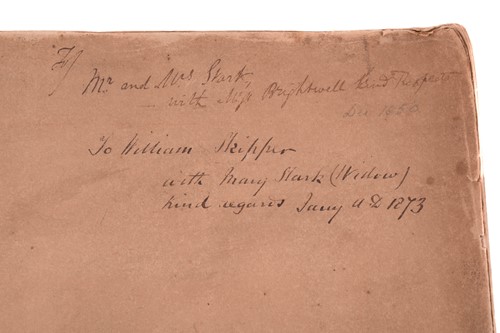 Mr. and Mrs Stark,
with Miss Brightwell kind respects
Dec 1858
To William Skipper
with Mary Stark (Widow)
kind regards Jany AD 1873